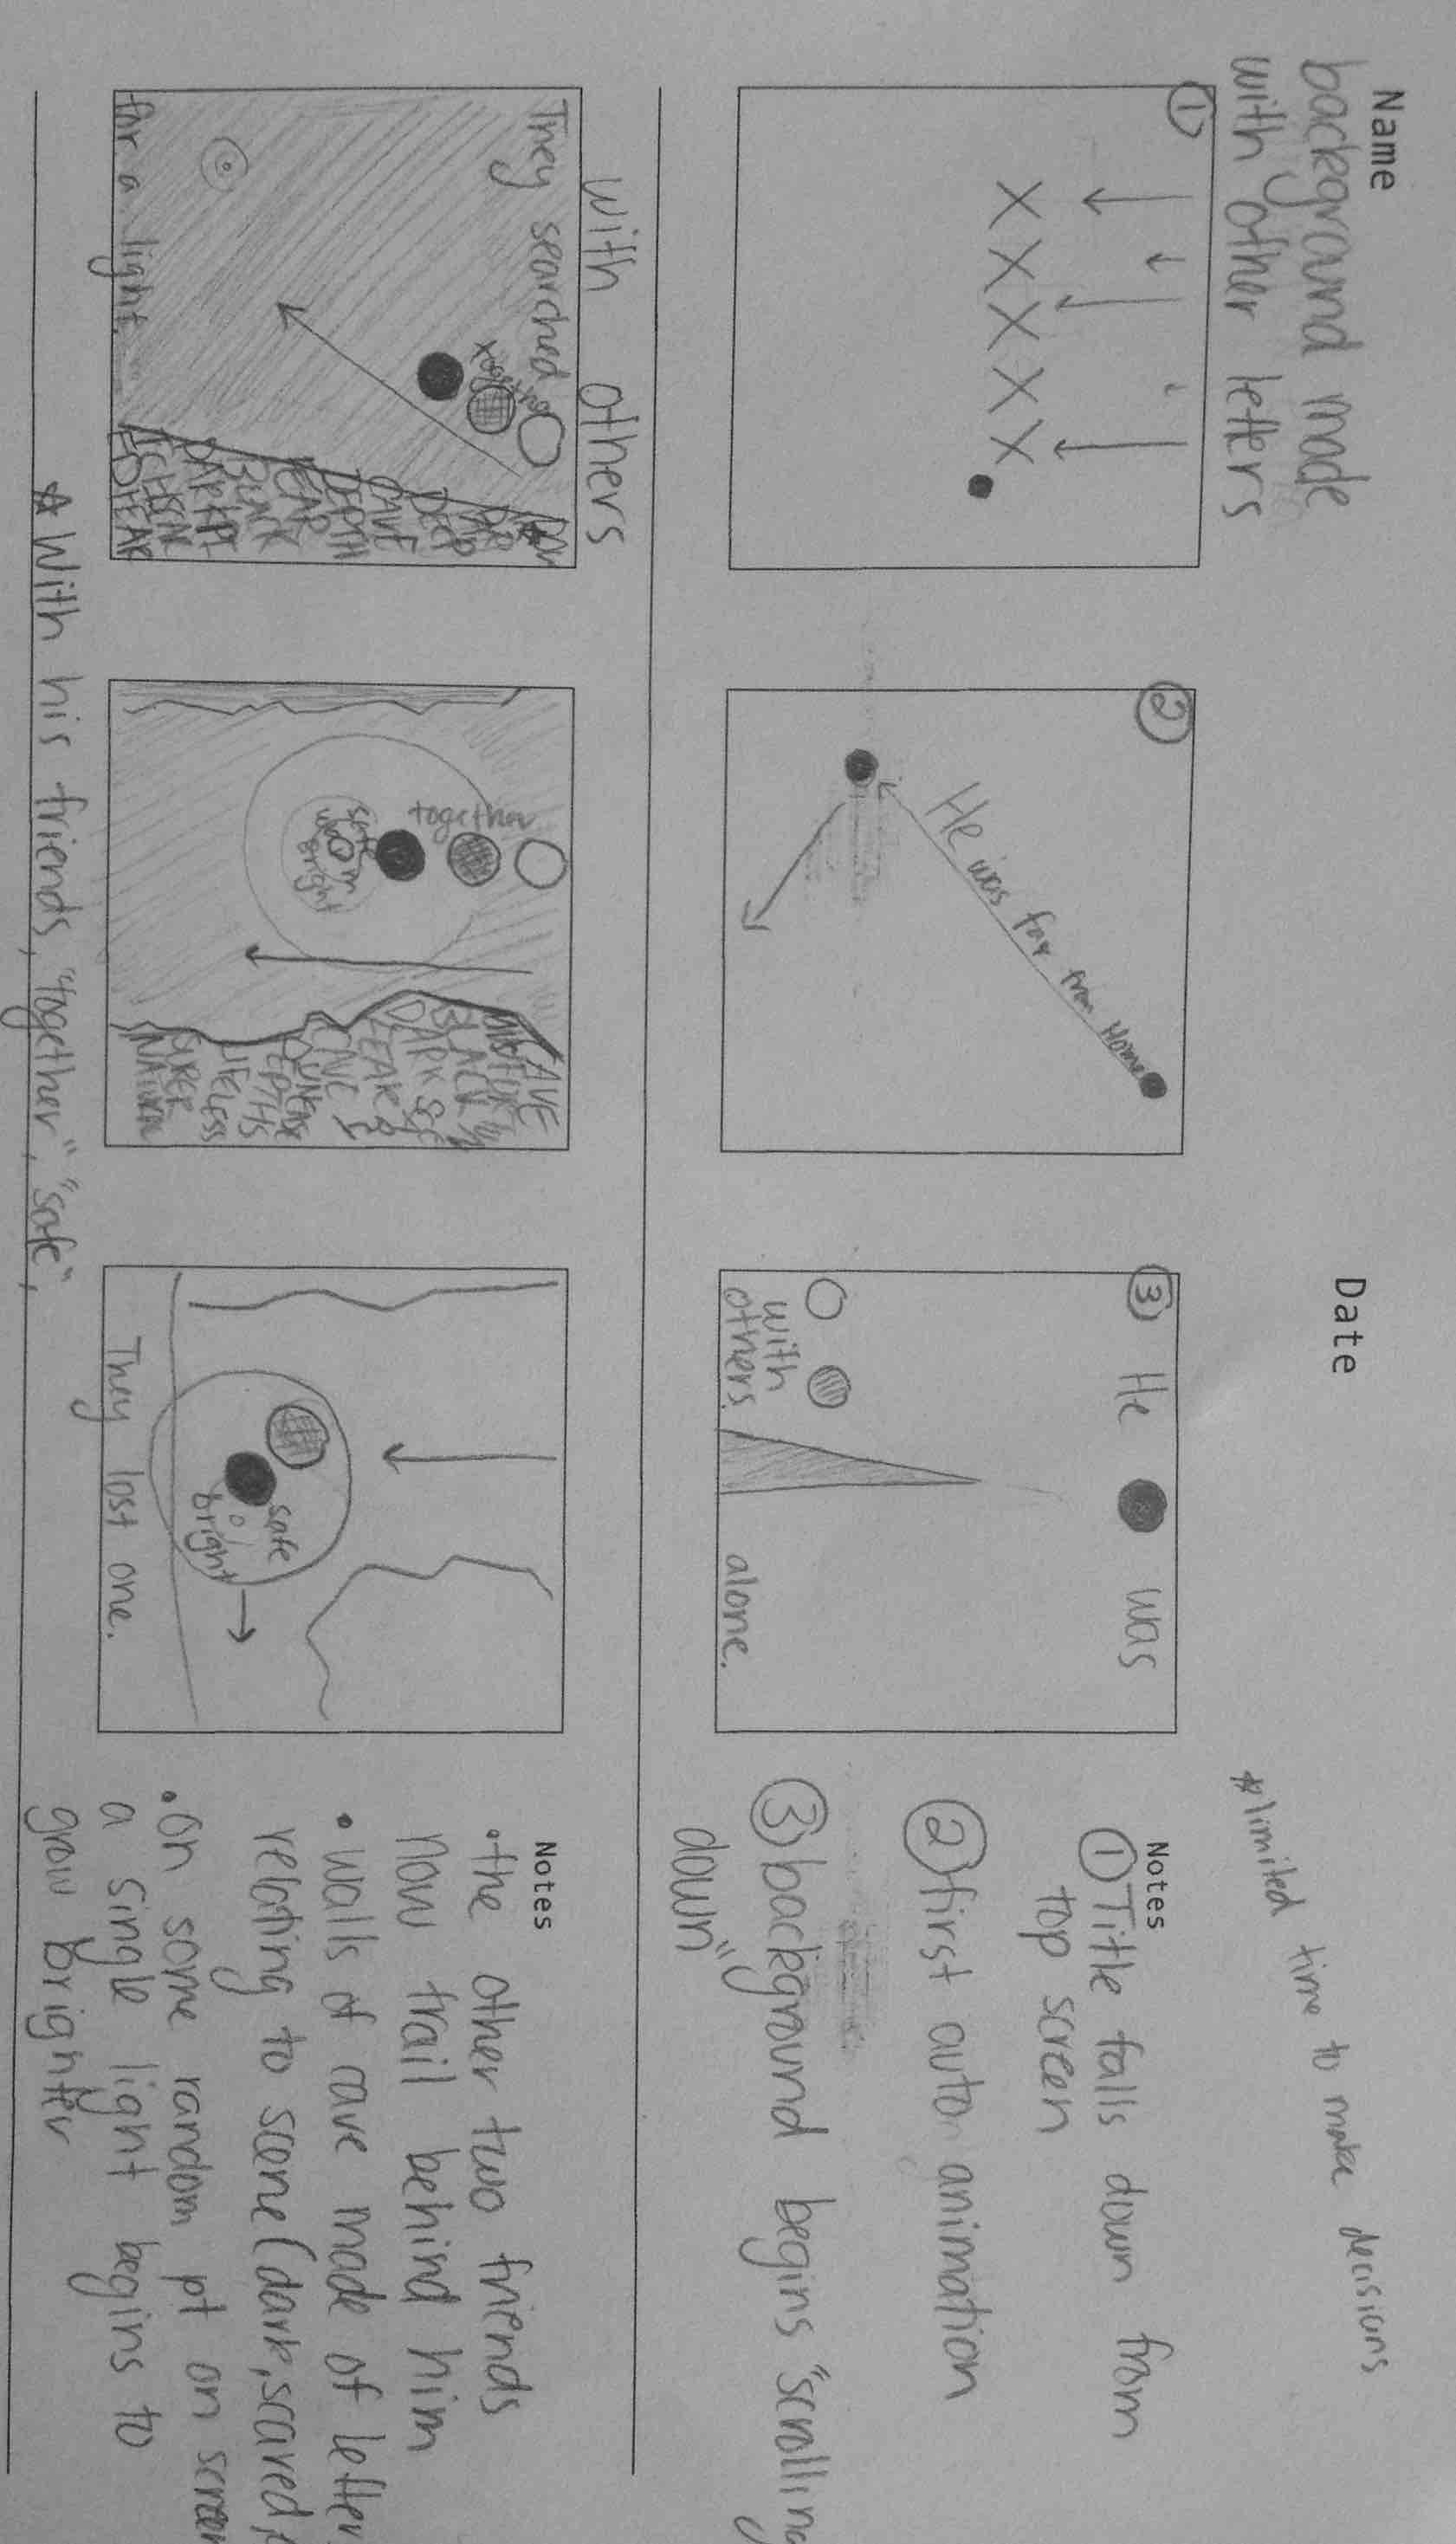 Name
Date
background made
with other letters
*limited time to make decisions
①
X X X X X
②
He was far from Home
③ He was
with
others.
alone.
Notes
①Title falls down from
top screen
②first auto animation
③background begins "scrolling
down"
with others
They searched
together
for a light.
DEEP
CAVE
DEPTH
FEAR
BLACK
together
safe
warm
bright
CAVE
BLACK
DARK
FEAR
CAVE
DEPTHS
LIFELESS
safe
bright
They lost one.
Notes
•the other two friends
now trail behind him
•walls of cave made of letter
relating to scene (dark, scared,
•On some random pt on screen
a single light begins to
grow brighter
*With his friends, "together", "safe",